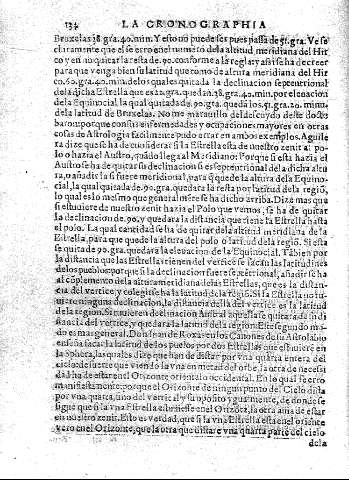 134 LA CRONOGRAPHIA
Bruxelas 38.gra.40.min. Y esto no puede ser pues passa de 51.gra. Ve se
claramente que el se erro en el numero de la altitud meridiana del Hir
co y en no quitar la resta de 90. conforme a la regla: y assi se ha de creer
para que venga bien su latitud que tomo de altura meridiana del Hir
co. 60. gra. 40. minu. de los quales quitada la declinacion septentrional
de la dicha Estrella que es 22. gra. quedã 38. gra. 40. min. por eleuaciõ
de la Equinocial, la qual quitada de 90. gra. queda los. 51. gra. 20. minu.
de la latitud de Bruxelas. No me marauillo del descuydo deste docto
baron porque con sus enfermedades y occupaciones mayores en otras
cosas de Astrologia facilmente pudo errar en ambos exemplos. Aguile
ra dize que se ha de considerar si la Estrella esta de nuestro zenit al po-
lo o hazia el Austro, quãdo llega al Meridiano: Porque si esta hazia el
Austro se ha de quitar su declinacion si es septentrional de la dicha altu
ra, o añadir la si fuere meridional, para q̃ quede la altura de la Equino-
cial, la qual quitada de. 90. gra. quedara la resta por latitud de la regiõ,
lo qual es lo mesmo que generalmẽte se ha dicho arriba. Dize mas que
si estuuiere de nuestro zenit hazia el Polo que vemos, se ha de quitar
la declinacion de. 90. y quedara la distancia que tiene la Estrella hasta
el polo. La qual cantidad se ha de quitar de la altitud meridiana de la
Estrella, para que quede la altura del polo o latitud de la regiõ. Si esta
se quita de 90. gra. quedara la eleuacion de la Equinocial. Tãbien por
la distancia que las Estrellas tienen del vertice se sacan las latitudines
de los pueblos: porque si la declinacion fuere septẽtrional, añadir se ha
al cõplemento de la altura meridiana de las Estrellas, que es la distan-
cia del vertice, y colegirse ha la latitud de la regiõ. Si la Estrella no tu-
uiere ninguna declinacion, la distancia della del vertice es la latitud
de la region. Si tuuieren declinacion Austral aquella se quitara de la di
stancia del vertice, y quedara la latitud de la region: Este segundo mo-
do es mas general. Don Iuan de Rojas en los Canones de su Astrolabio
enseña sacar la latitud de los pueblos por dos Estrellas que estuuieren en
la Sphera, las quales dize que han de distar por vna quarta entera del
ciclo: de suerte que viendo la vna en metad del orbe, la otra de necesi
dad ha de estar en el Orizonte oriental o occidental. En lo qual se erro
manifiestamente: porque el Orizonte de ninguun punto del Cielo dista
por vna quarta, sino del vertical y su opposito ygualmente, de donde se
sigue que si la vna Estrella estuuiesse en el Orizõte, la otra auia de estar
en nuestro zenit. Esto es verdad, que si la vna Estrella esta en el oriente
vero en el Orizonte, que la otra que distare vna quarta parte del cielo
de la